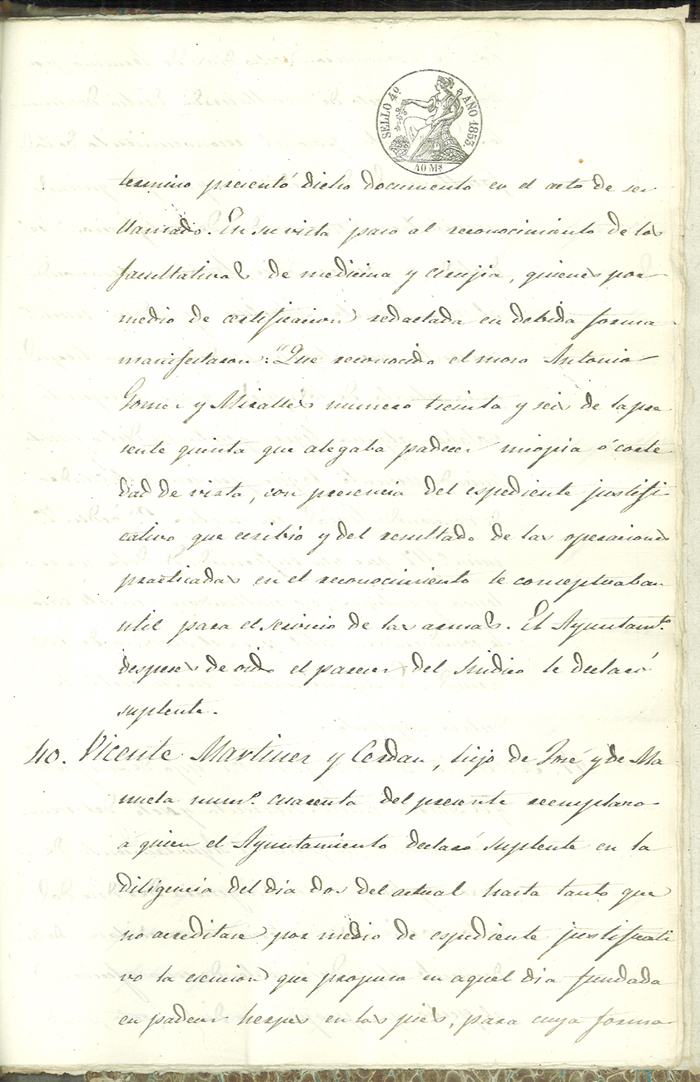 SELLO 4º AÑO 1853.
40 Ms
termino presentó dicho documento en el acto de ser
llamado. En su vista pasó al reconocimiento de los
facultativos de medicina y cirujia, quienes por
medio de certificacion redactada en debida forma
manifestaron: "Que reconocido el moso Antonio
Gomez y Miralles numero treinta y seis de la pre
sente quinta que alegaba padecer miopia ó corte
dad de vista, con presencia del espediente justifi
cativo que ecsibio y del resultado de las operaciones
practicadas en el reconocimiento le conceptuaban
util para el servicio de las armas. El Ayuntamto.
despues de oido el parecer del Sindico le declaró
suplente.
40. Vicente Martinez y Cerdan, hijo de José y de Ma
nuela numo. cuarenta del presente reemplazo
a quien el Ayuntamiento declaró suplente en la
diligencia del dia dos del actual hasta tanto que
no acreditase por medio de espediente justificati
vo la esencion que propuso en aquel dia fundada
en padecer herpes en los pies, para cuya forma